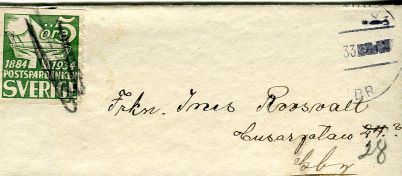 5
öre
1884 1934
POSTSPARBANKEN
SVERIGE
33
BR
Frkn. Ines Roosvall
Husargatan 24. ?
28
Gbg